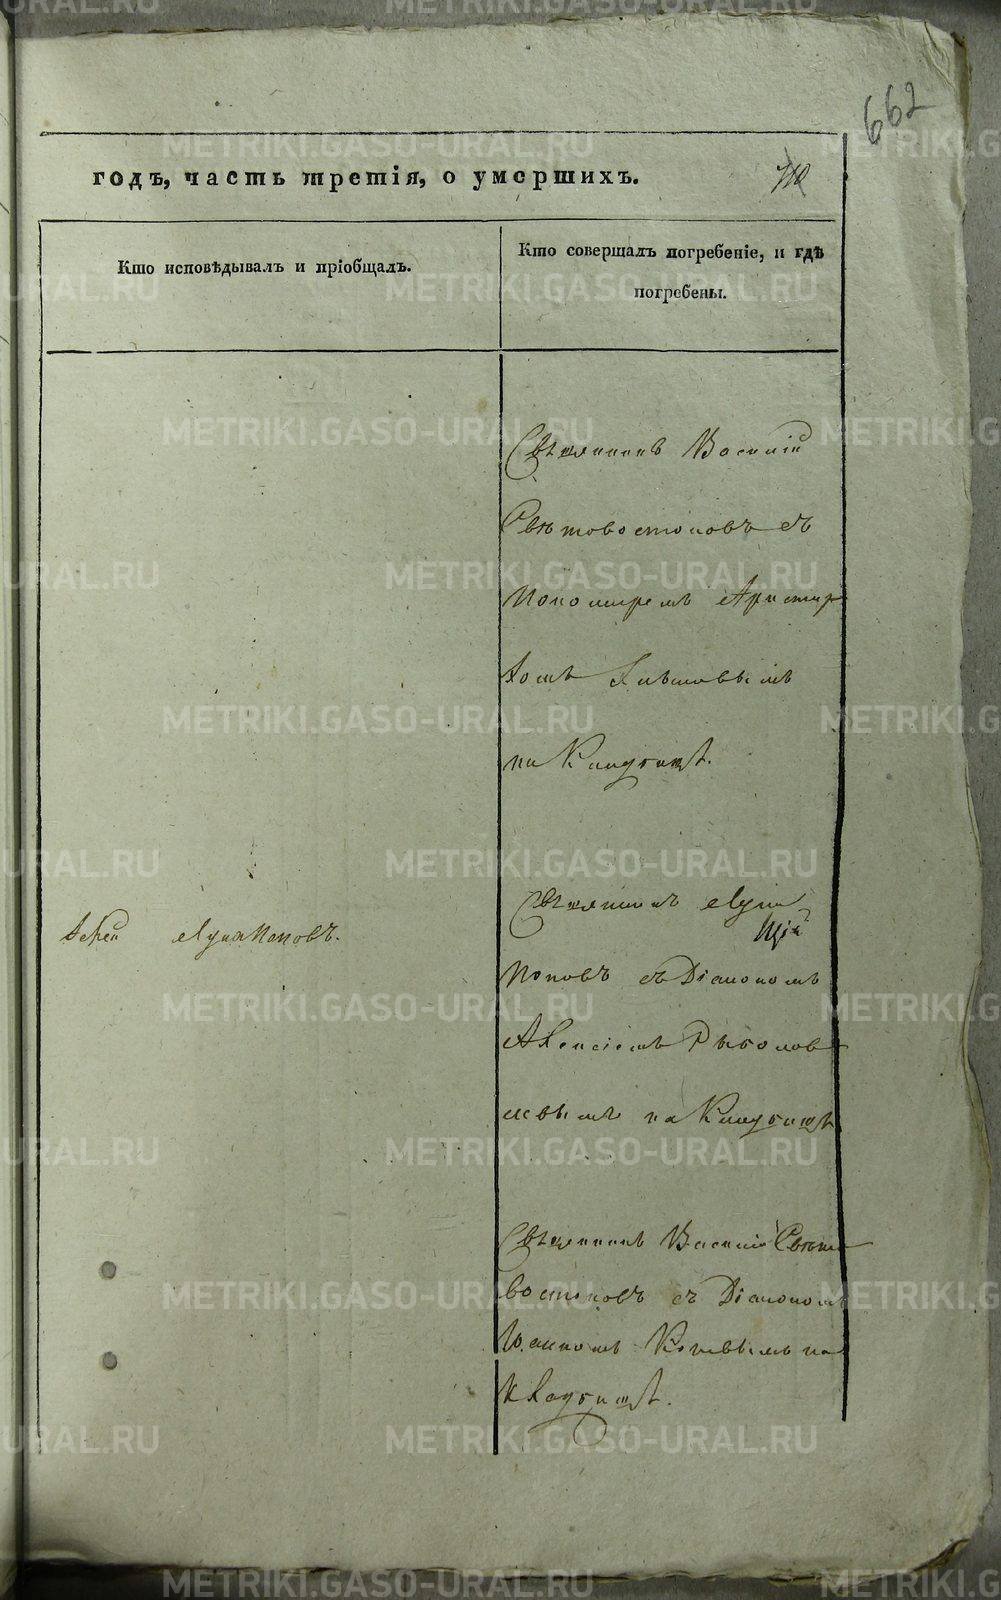 662
годъ, часть третія, о умершихъ.
Кто исповѣдывалъ и пріобщалъ.
Кто совершалъ погребеніе, и гдѣ
погребены.
Священникъ Василій
Свѣтовостоковъ съ
Пономаремъ
на Кладбищѣ.
Священникъ Луппа
Іерей Луппа Поповъ.
Поповъ съ Діакономъ
Алексіемъ Рыболов
левымъ на Кладбищѣ
Священникъ Василій Свѣто
востоковъ съ Діакономъ
Іоанномъ на
Кладбищѣ.
METRIKI.GASO-URAL.RU